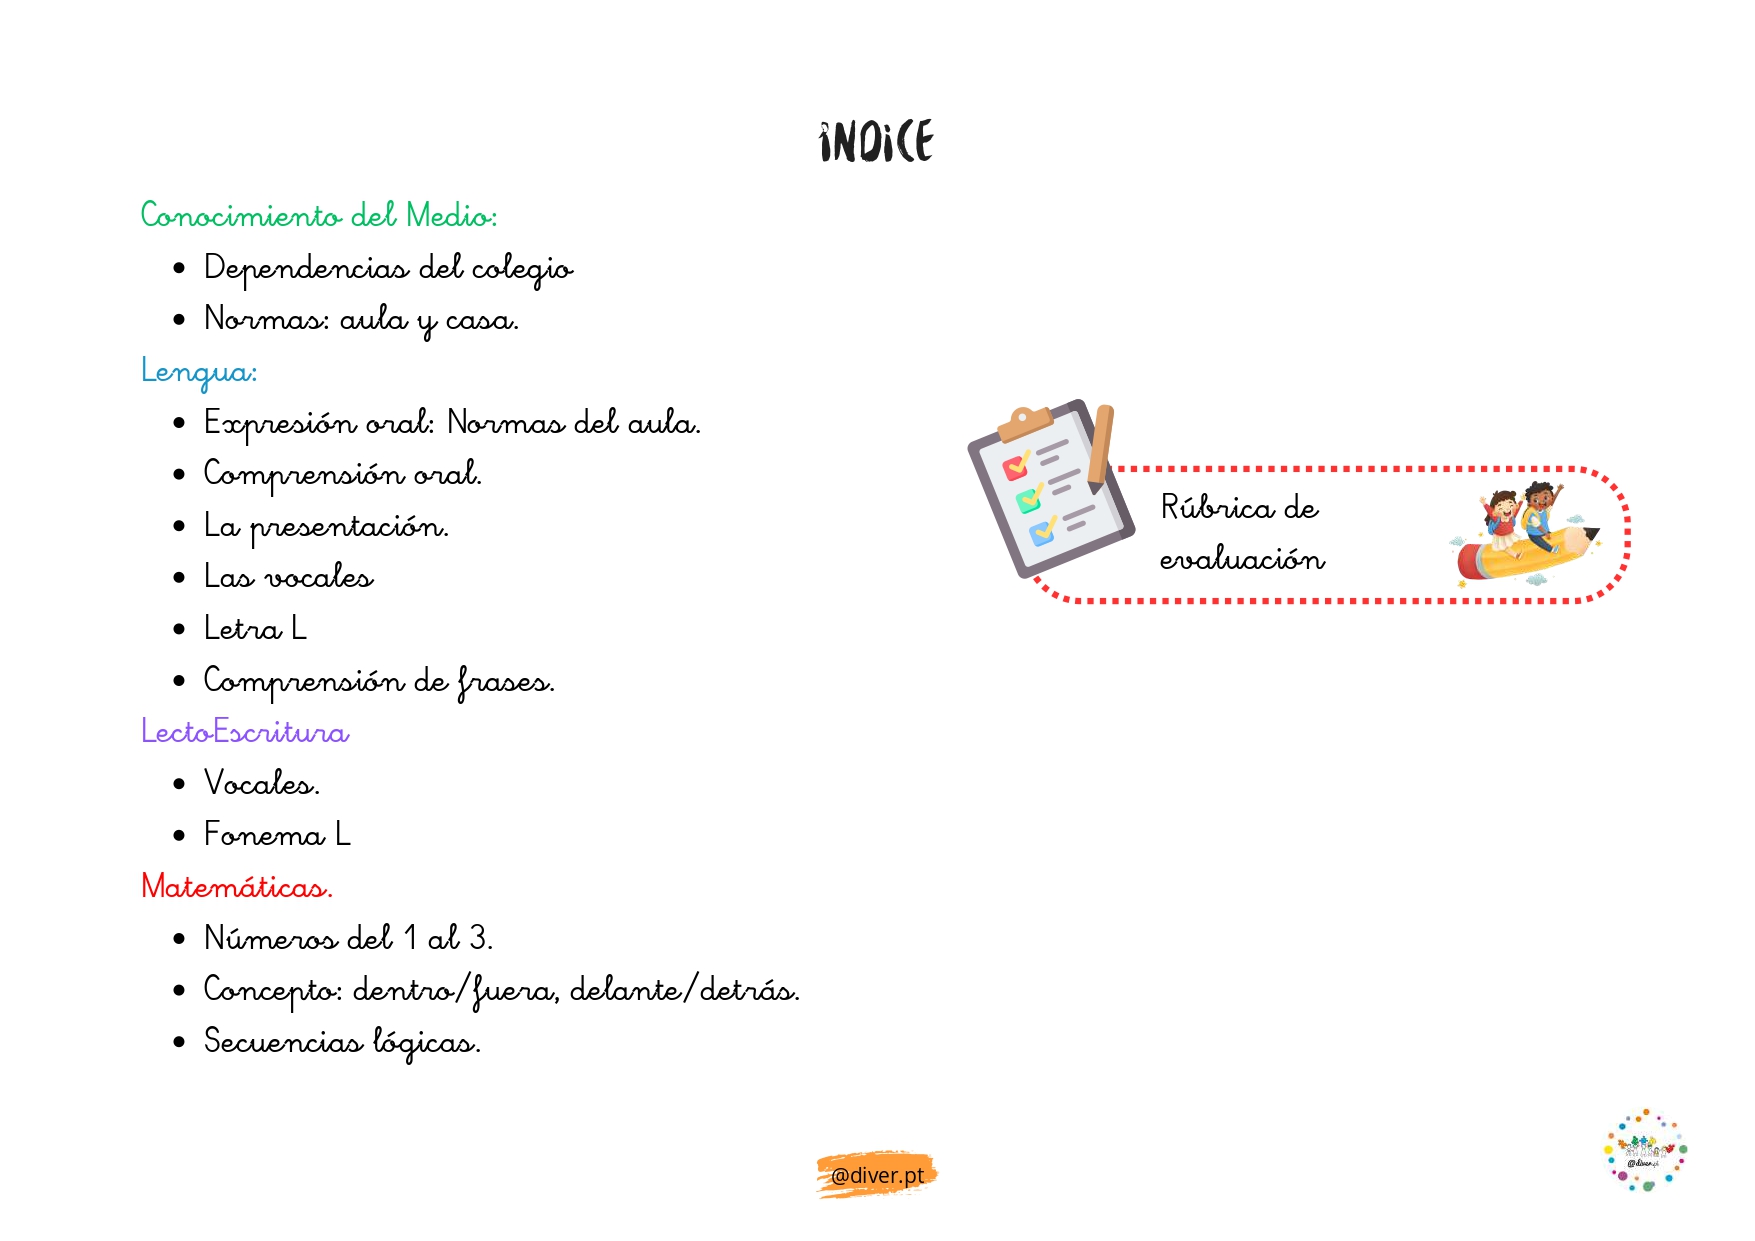 ÍNDICE
Conocimiento del Medio:
• Dependencias del colegio
• Normas: aula y casa.
Lengua:
• Expresión oral: Normas del aula.
• Comprensión oral.
• La presentación.
• Las vocales
• Letra L
• Comprensión de frases.
LectoEscritura
• Vocales.
• Fonema L
Matemáticas.
• Números del 1 al 3.
• Concepto: dentro/fuera, delante/detrás.
• Secuencias lógicas.
Rúbrica de
evaluación
@diver.pt
@diver.pt